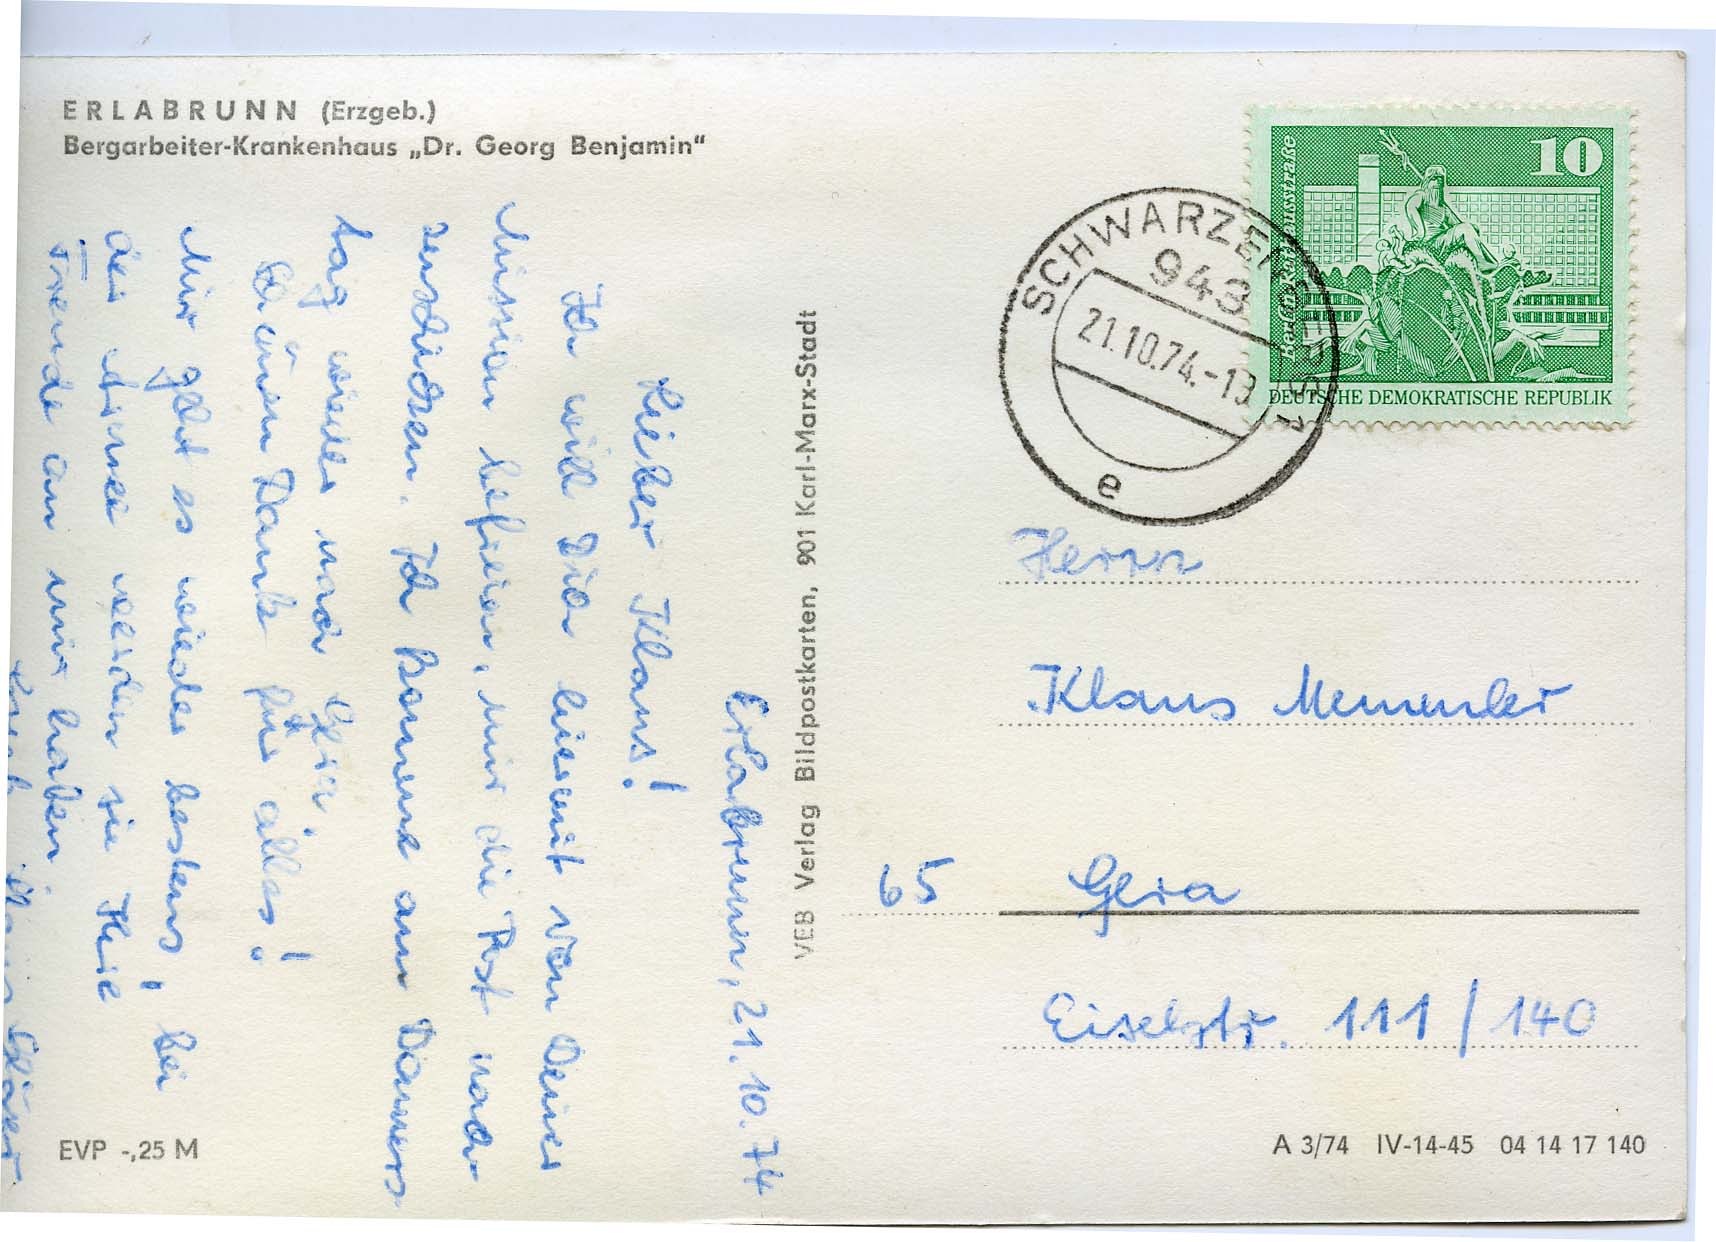 ERLABRUNN (Erzgeb.)
Bergarbeiter-Krankenhaus „Dr. Georg Benjamin“
Erlabrunn, 21.10.74
Lieber Klaus!
Ich will Dich hiermit von Deiner
Mission befreien, mir die Post nach-
zuschicken. Ich komme am Donners-
tag wieder nach Gera.
Schönen Dank für alles!
Mir geht es wieder bestens! Bei
der Armee werden sie ihre
Freude an mir haben.
VEB Verlag Bildpostkarten, 901 Karl-Marx-Stadt
10
Rathausstraße
DEUTSCHE DEMOKRATISCHE REPUBLIK
943
21.10.74.-13
e
Herrn
Klaus Memmler
65 Gera
Eiselstr. 111/140
EVP -,25 M
A 3/74 IV-14-45 04 14 17 140